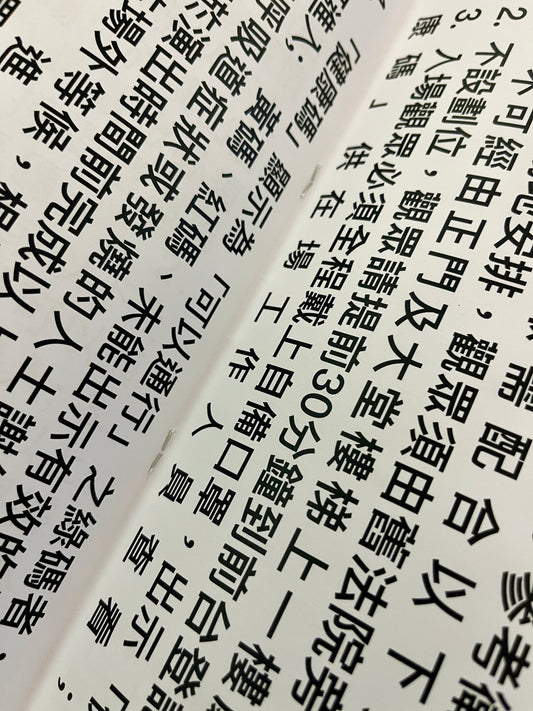 參考衛
需配合以下
地安排，觀眾須由舊法院旁
不可經由正門及大堂樓梯上一樓
2. 不設劃位，觀眾請提前30分鐘到前台登記
3. 入場觀眾必須全程戴上自備口罩，出示「
康碼」供在場工作人員查看；
「健康碼」顯示為「可以通行」之綠碼者，
進入；黃碼、紅碼、未能出示有效的
呼吸道症狀或發燒的人士謝
演出時間前完成以上
場外等候，
進